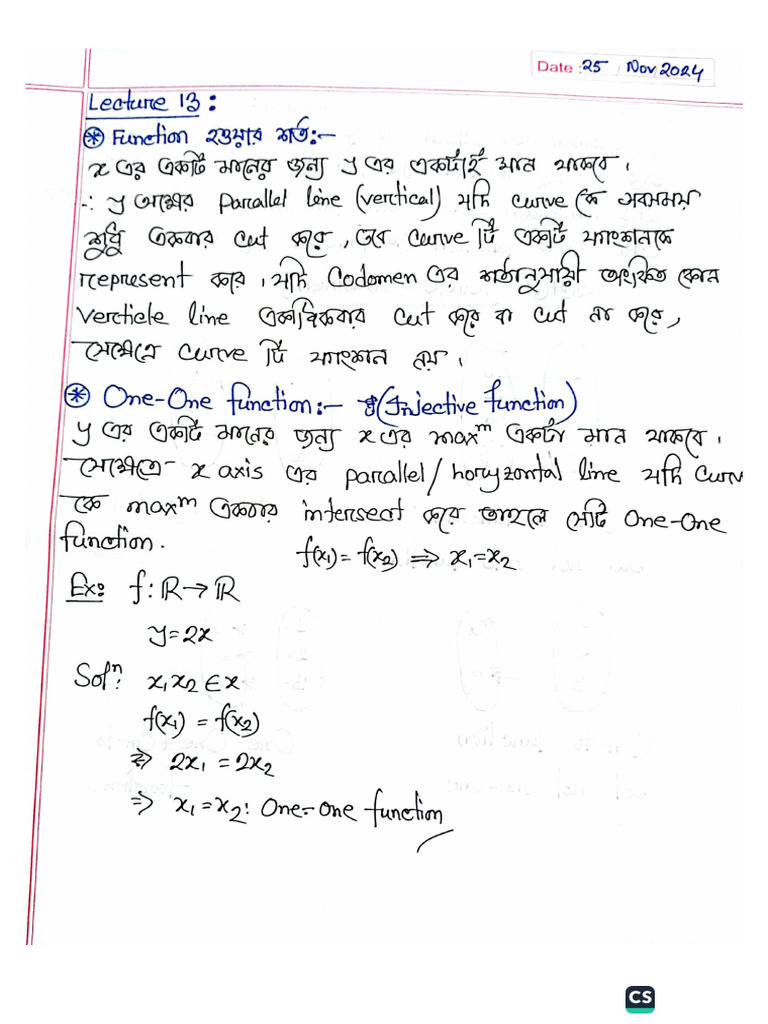 Date : 25 / Nov 2024
Lecture 13 :
⊛ Function হওয়ার শর্ত:-
x এর একটি মানের জন্য y এর একটাই মান থাকবে।
∴ y অক্ষের parallel line (vertical) যদি curve কে সবসময়
শুধু একবার cut করে, তবে curve টি একটি ফাংশনকে
represent করে। যদি Codomen এর শর্তানুযায়ী অংকিত কোন
verticle line একাধিকবার cut করে বা cut না করে,
সেক্ষেত্রে curve টি ফাংশন নয়।
⊛ One-One function:- (Injective function)
y এর একটি মানের জন্য x এর maxᵐ একটা মান থাকবে।
সেক্ষেত্রে x axis এর parallel/horyzontal line যদি curv
কে maxᵐ একবার intersect করে তাহলে সেটি One-One
function.
f(x₁) = f(x₂) ⇒ x₁=x₂
Ex: f : ℝ → ℝ
y = 2x
Solⁿ: x₁x₂ ∈ x
f(x₁) = f(x₂)
⇒ 2x₁ = 2x₂
⇒ x₁ = x₂ : One-one function
CS